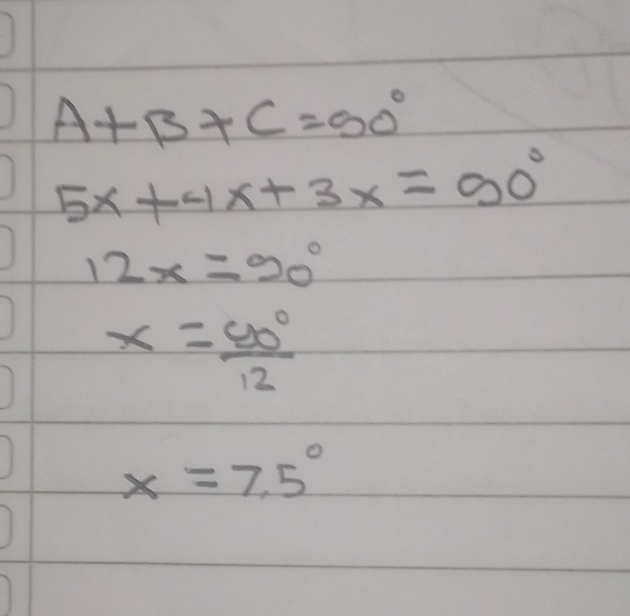 A+B+C=90°
5x+4x+3x=90°
12x=90°
x=90°
12
x=7,5°